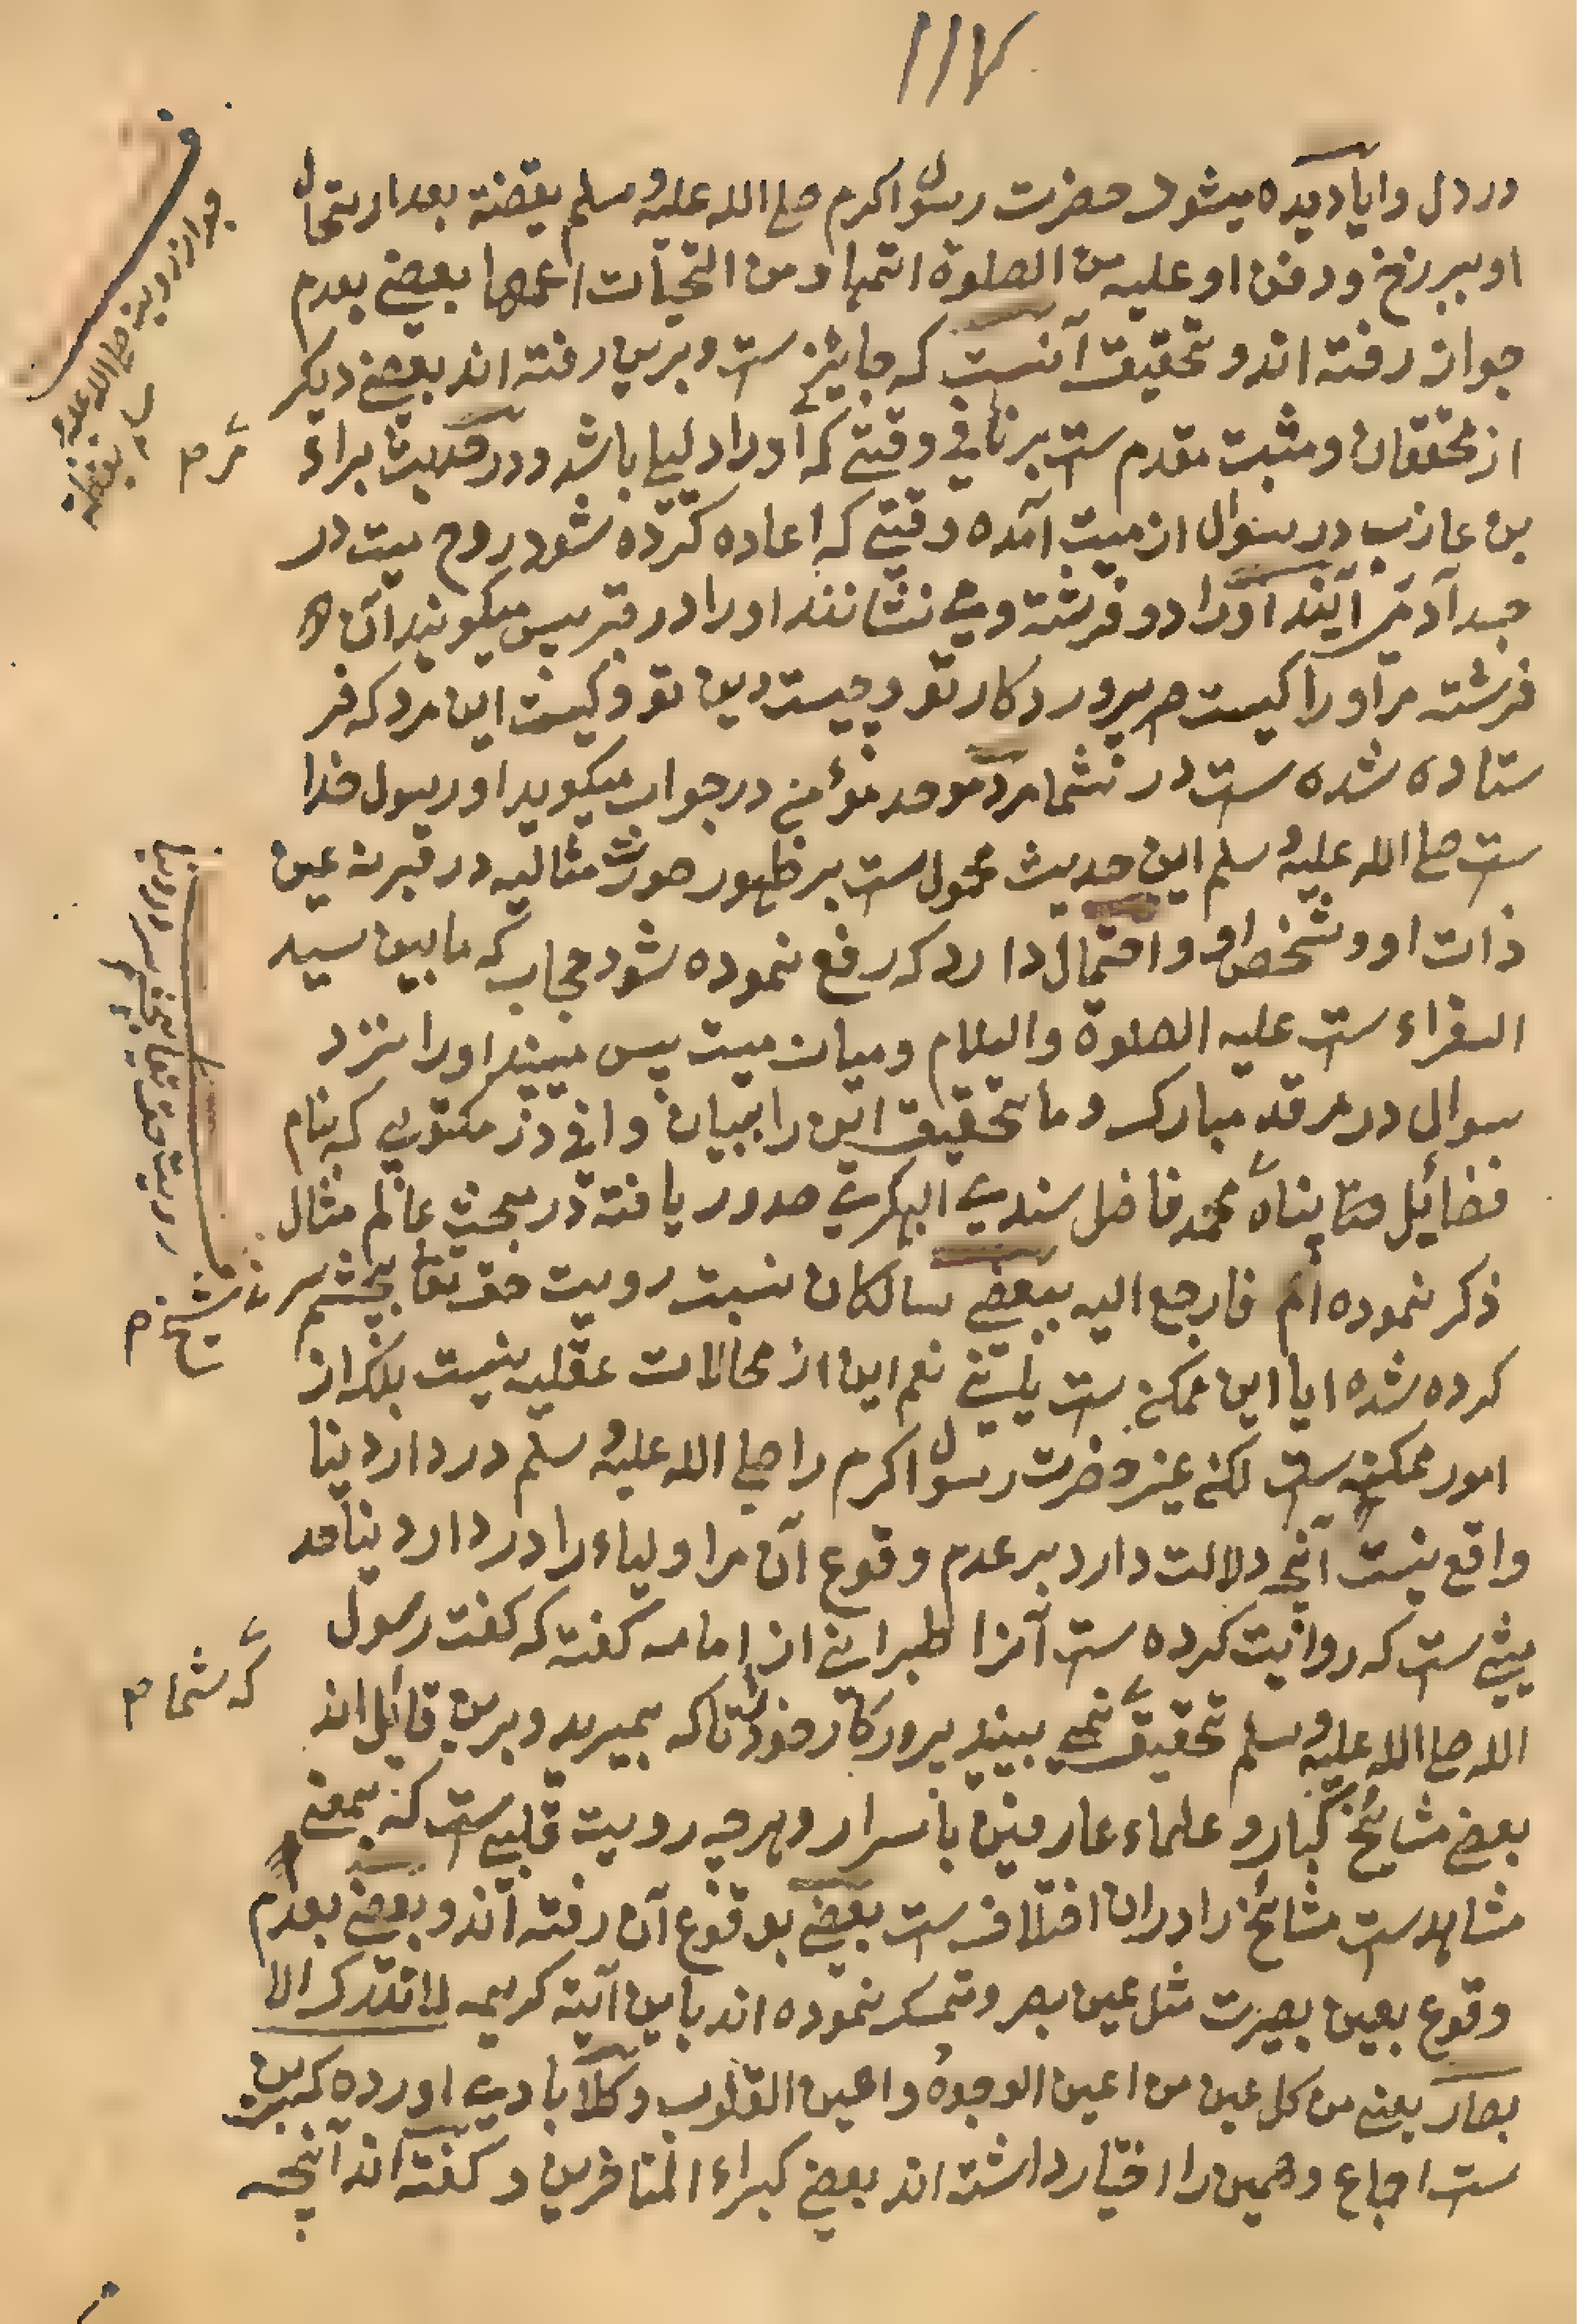 ۱۱۷
در دل و ایا دیده میشود حضرت رسول اکرم صلے الله علیه وسلم یقضة بعد ارتحال
او ببرزخ و دفن او علیه من الصلوة اتمها و من التحیات اعمها بعضے بعدم
جواز رفته اند و تحقیق آنست که جایز ست و برین رفته اند بعضے دیکر
از محققان و مثبت مقدم ست بر نافی وقتے که او را دلیلے باشد و در حدیث براء
بن عازب در سوال از میت آمده وقتے که اعاده کرده شود روح میت در
جسد آدمی آیند او را دو فرشته و مے نشانند او را در قبر پس میکویند آن
فرشته مر او را کیست پروردکار تو و چیست دین تو و کیست این مرد که فر
ستاده شده ست در شما مرد موحد مؤمن در جواب میکوید او رسول خدا
ست صلے الله علیه وسلم این حدیث محمول ست بر ظهور صورت مثالیه در قبر نه عین
ذات او و شخص او و احتمال دارد که رفع نموده شود حجاب که مابین سید
السفراء ست علیه الصلوة والسلام و میان میت پس میبیند او را نزد
سوال در مرقد مبارک و ما تحقیق این را ببیان وافی در مکتوبے که بنام
فضائل پناه محمد فاضل سندے البهکرے صدور یافته در مبحث عالم مثال
ذکر نموده ام فارجع الیه ببعضے سالکان نسبت رویت حق تعا بچشم سر
کرده شده ایا این ممکن ست یا نے نعم این از محالات عقلیه نیست بلکه از
امور ممکنه ست لکن غیر حضرت رسول اکرم را صلے الله علیه وسلم در دار دنیا
واقع نیست آنچه دلالت دارد بر عدم وقوع آن مر اولیاء را در دار دنیا حد
یثے ست که روایت کرده ست آنرا طبرانے از امامه کفته که کفت رسول
الله صلے الله علیه وسلم تحقیق نمے بینید پروردکار خود را تاکه بمیرید و برین قائل اند
بعضے مشایخ کبار و علماء عارفین باسرار و هرچه رویت قلبے ست که بمعنے
مشاهد ست مشائخ را دران اختلاف ست بعضے بوقوع آن رفته اند و بعضے بعدم
وقوع بعین بصیرت مثل عین بصر و تمسک نموده اند باین آیته کریمه لا تدرکه الا
بصار یعنے من کل عین من اعین الوجوه و اعین القلوب و کلابادے اورده که برین
ست اجماع و همین را اختیار داشته اند بعضے کبراء المتاخرین و کفته اند آنچه
جواز رویة صلے الله علیه
یقظة
رویت حق تعا بچشم سر در دنیا
شیخ م
که شما م